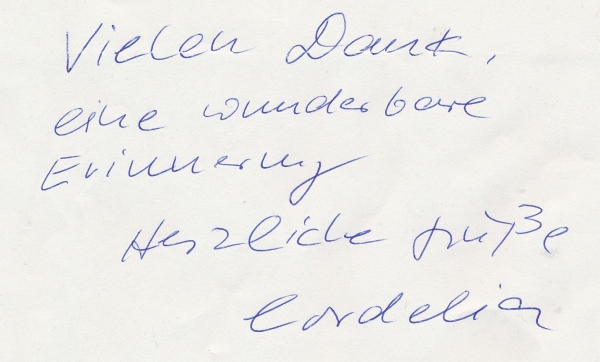 Vielen Dank,
eine wunderbare
Erinnerung
Herzliche Grüße
Cordelia